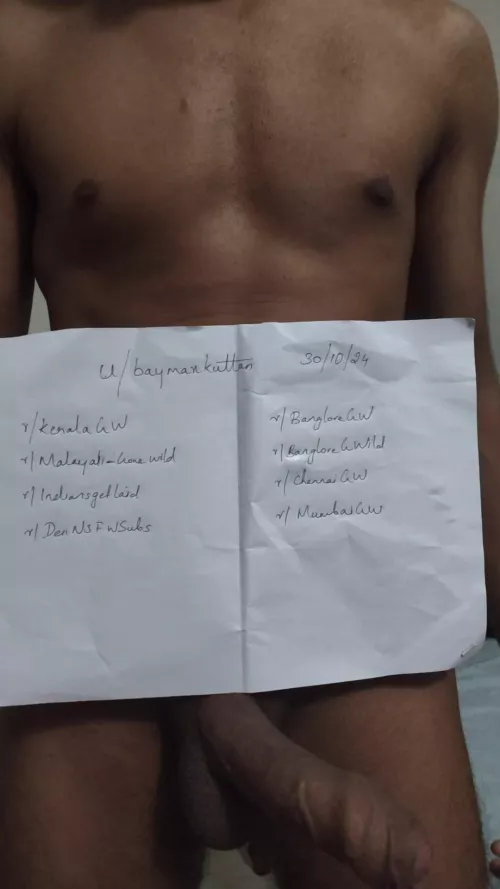 u/baymankuttan 30/10/24
r/KeralaGW
r/Malayali-Gone wild
r/Indiansgetlaid
r/DesiNSFWSubs
r/BangloreGW
r/BangloreGWild
r/ChennaiGW
r/MumbaiGW